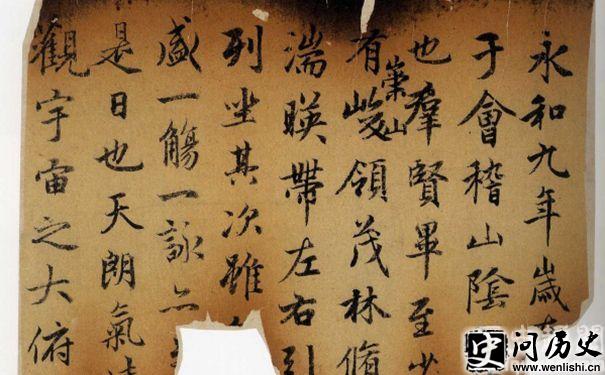 永和九年歲在
于會稽山陰
也羣賢畢至少
有崇山峻領茂林脩
湍暎帶左右引
列坐其次雖
盛一觴一詠亦
是日也天朗氣
觀宇宙之大俯
史 问历史
www.wenlishi.cn